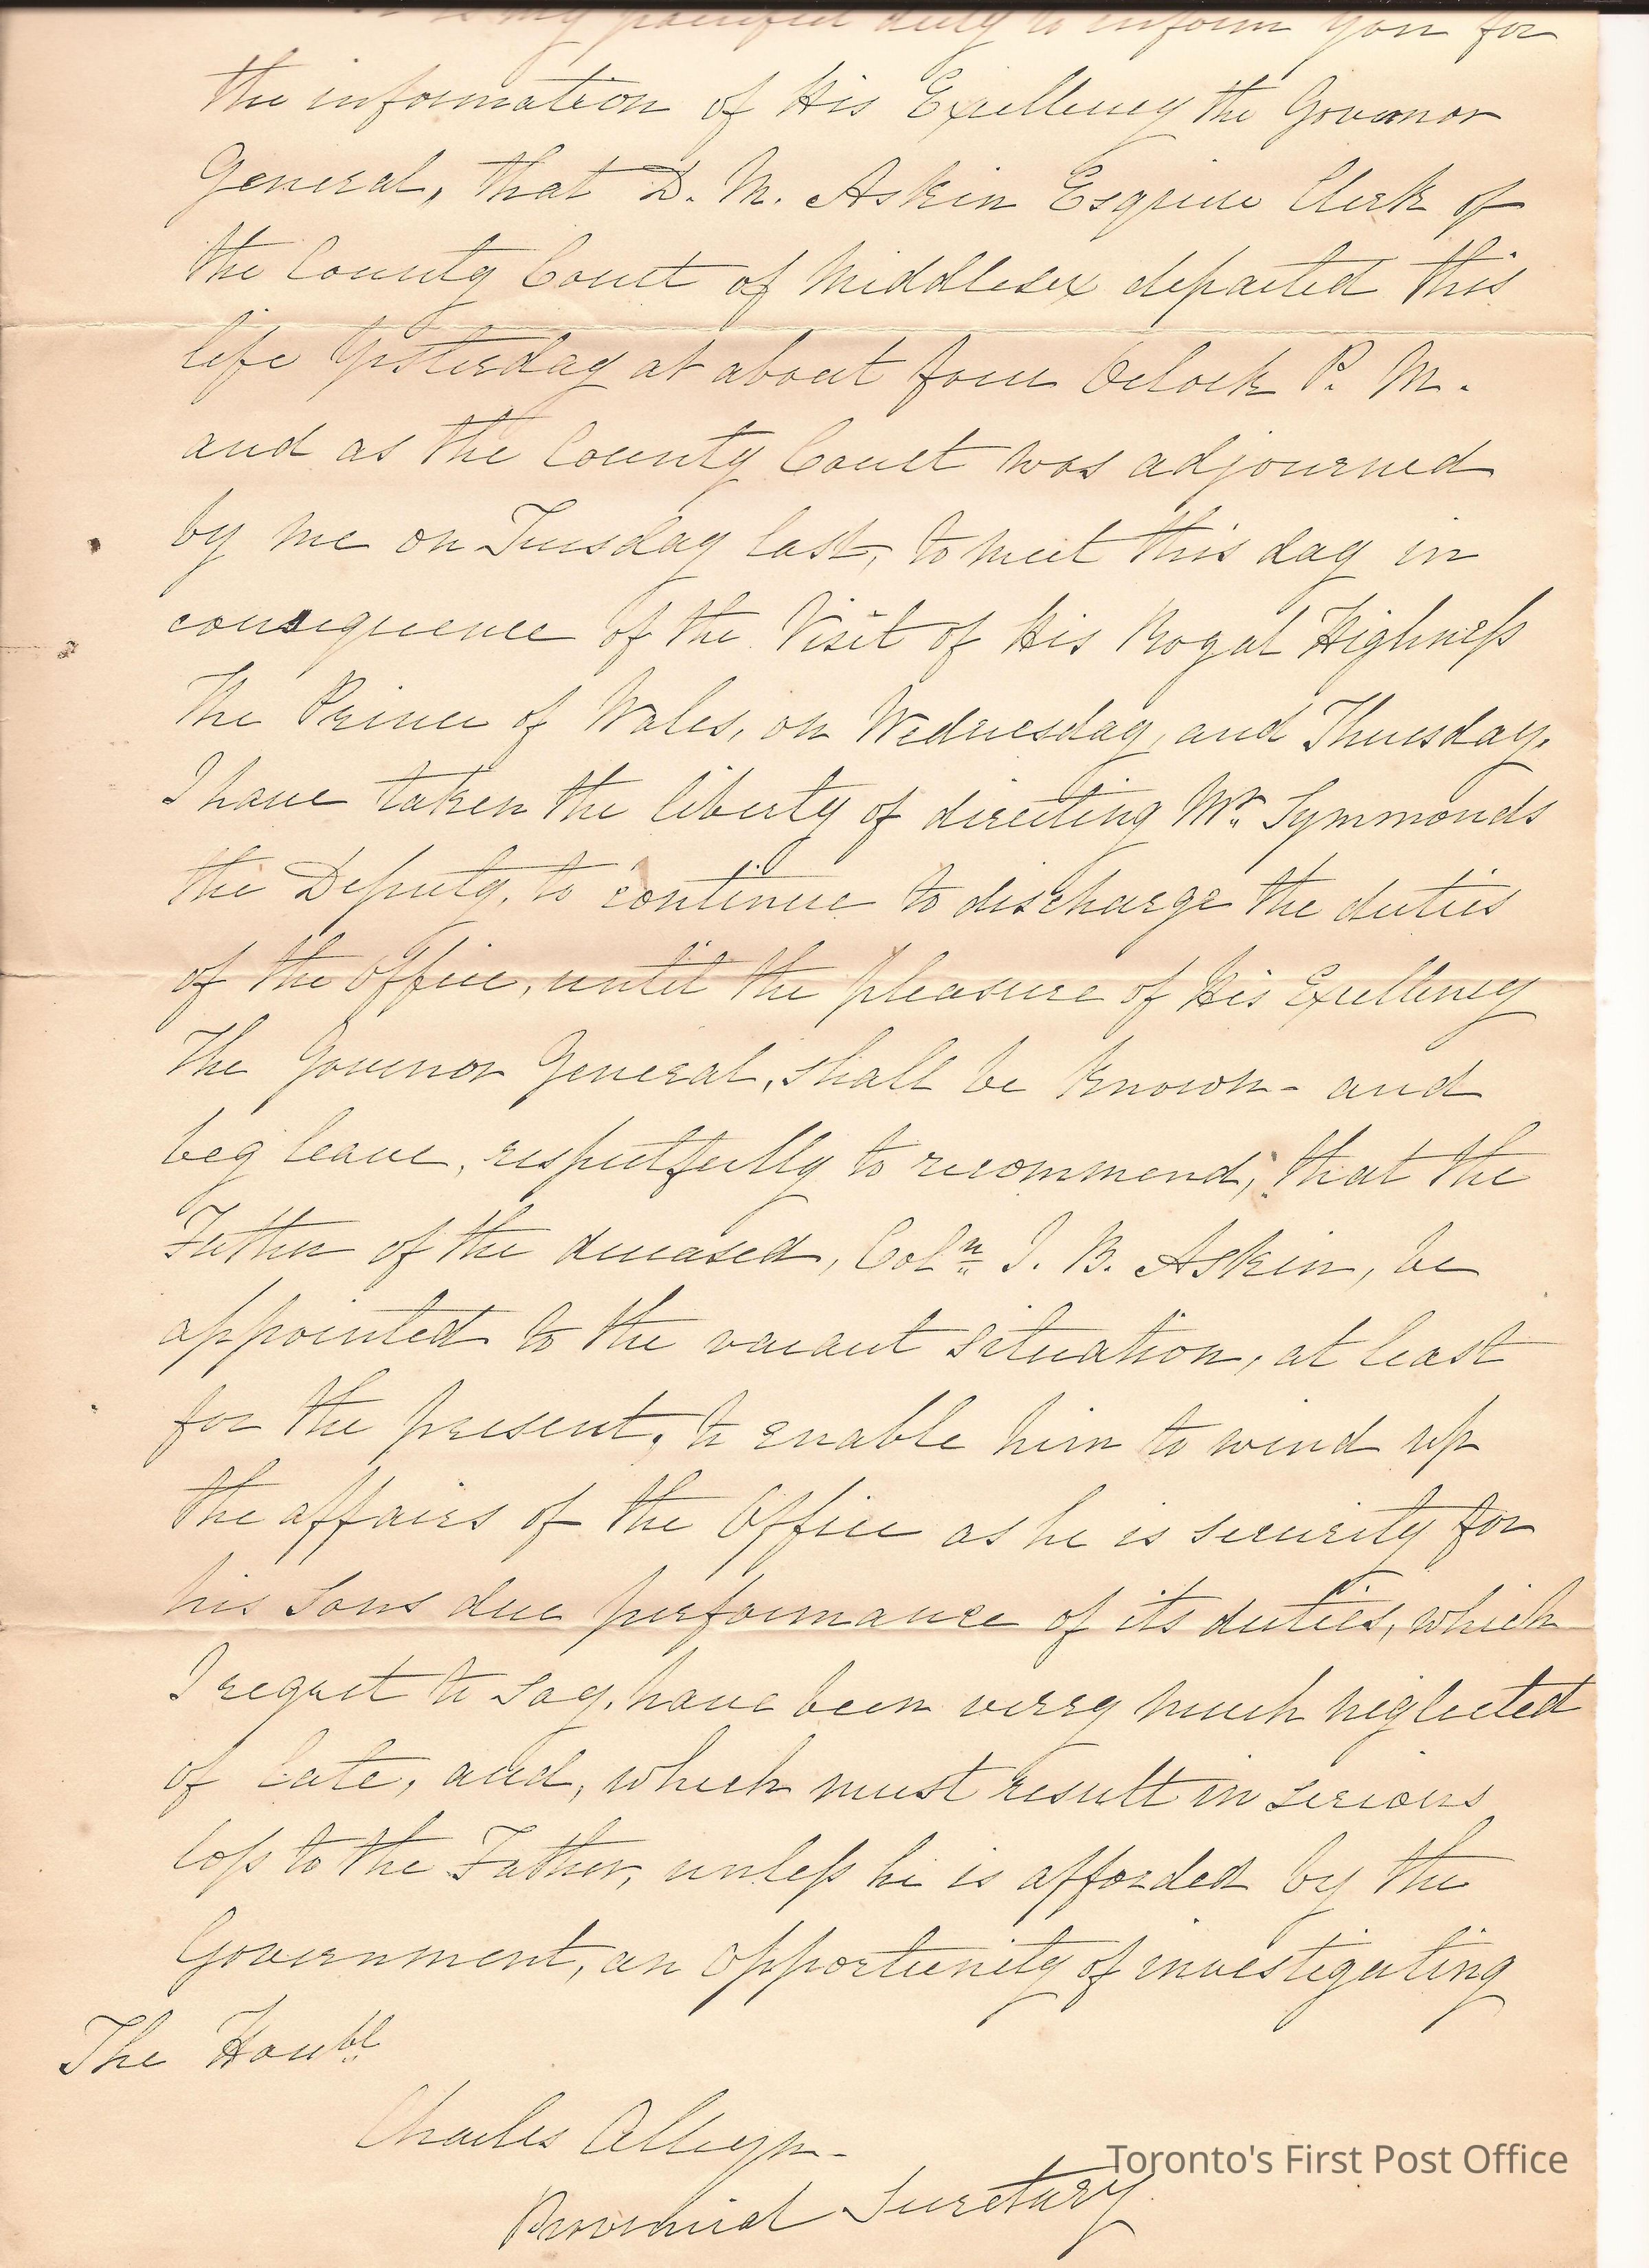 my painful duty to inform you for
the information of His Exellency the Governor
General, that D. M. Askin Esquire Clerk of
the County Court of Middlesex departed this
life Yesterday at about four Oclock P. M.
and as the County Court was adjourned
by me on Tuesday last, to meet this day in
consequence of the Visit of His Royal Highness
The Prince of Wales, on Wednesday, and Thursday,
I have taken the liberty of directing Mr. Symmonds
the Deputy, to continue to discharge the duties
of the Office, until the pleasure of His Exellency
The Govenor General, shall be known - and
beg leave, respectfully to recommend, that the
Father of the deceased, Coln J. B. Askin, be
appointed to the vacant situation, at least
for the present, to enable him to wind up
the affairs of the Office as he is security for
his sons due performance of its duties, which
I regret to say, have been verry much neglected
of late, and, which must result in serious
loss to the Father, unless he is afforded by the
Government, an Opportunity of investigating
The Honbl
Charles Alleyn -
Provincial Secretary
Toronto's First Post Office